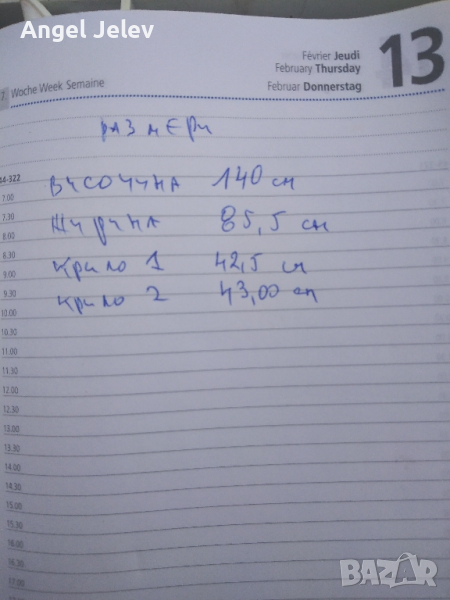 Angel Jelev
Février Jeudi
February Thursday
Februar Donnerstag
13
7. Woche Week Semaine
размери
44-322
7.00
височина 140 см
7.30
ширина 85,5 см
8.00
8.30
крило 1 42,5 см
9.00
9.30
крило 2 43,00 см
10.00
10.30
11.00
11.30
12.00
12.30
13.00
13.30
14.00
14.30
15.00
15.30
16.00
16.30
17.00
BAZAR